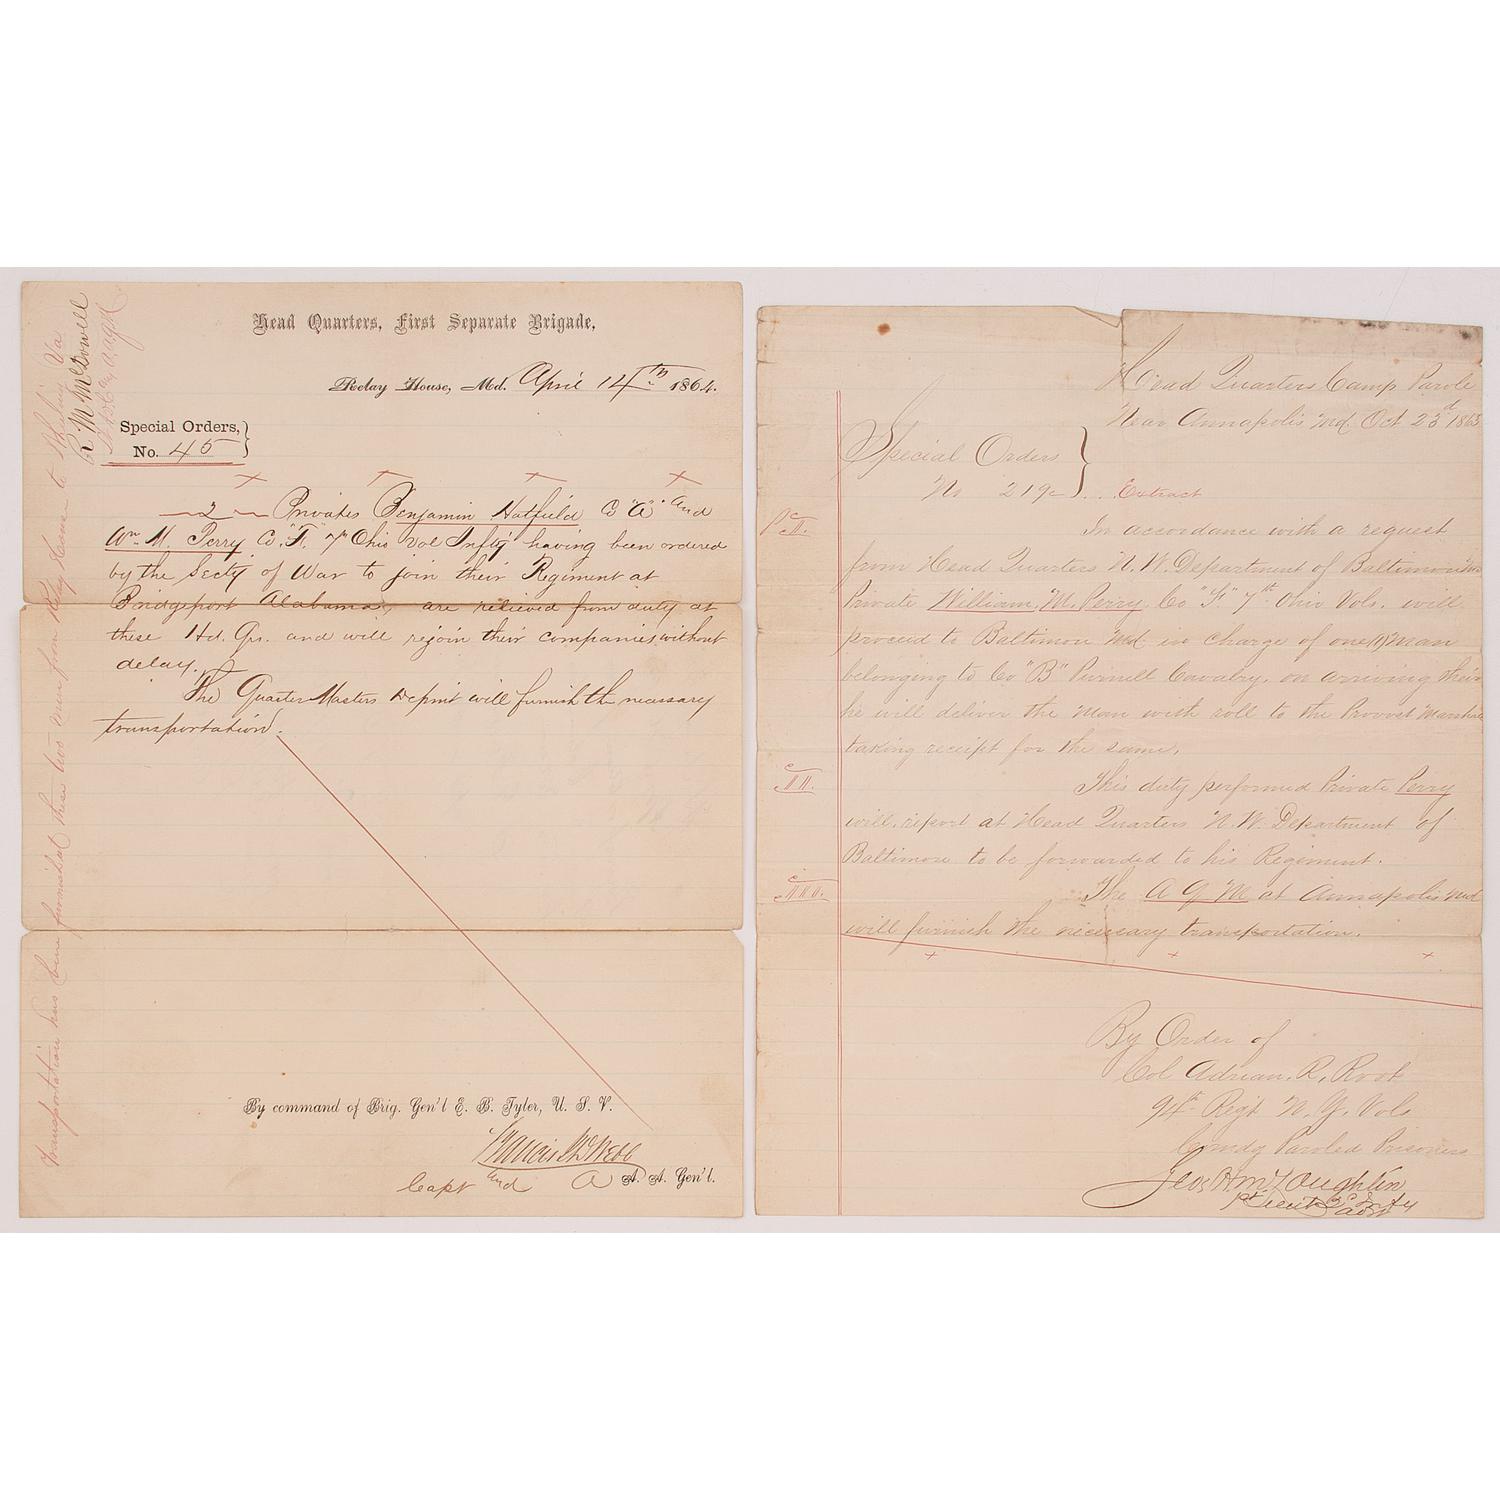 Head Quarters, First Separate Brigade,
Relay House, Md. April 14th 1864.
Special Orders,
No. 45
2 Privates Benjamin Hatfield Co "A" and
Wm. M. Perry Co. "F." 7th Ohio Vol Infty having been ordered
by the Secty of War to join their Regiment at
Bridgeport Alabama, are relieved from duty at
these Hd. Qrs. and will rejoin their companies without
delay.
The Quarter Masters Depmt will furnish the necessary
transportation.
By command of Brig. Gen'l E. B. Tyler, U. S. V.
Francis I. D. Webb
Capt and A A. A. Gen'l.
Transportation has been furnished these two men from Relay House to Va
R. M. McDowell
Head Quarters Camp Parole
Near Annapolis Md. Oct 23d 1863
Special Orders
No 219 Extract
In accordance with a request
from Head Quarters N. W. Department of Baltimore Md
Private William, M. Perry Co "F." 7th Ohio Vols. will
proceed to Baltimore Md in charge of one (1) Man
belonging to Co "B" Purnell Cavalry, on arriving their
he will deliver the Man with roll to the Provost Marshal
taking receipt for the same.
II.
This duty performed Private Perry
will, report at Head Quarters N. W. Department of
Baltimore to be forwarded to his Regiment.
III.
The A Q M at Annapolis Md
will furnish the necessary transportation.
By Order of
Col Adrian, R, Root
94th Regt N. Y. Vols
Comdg Paroled Prisoners
McLoughlin
1st Lieut